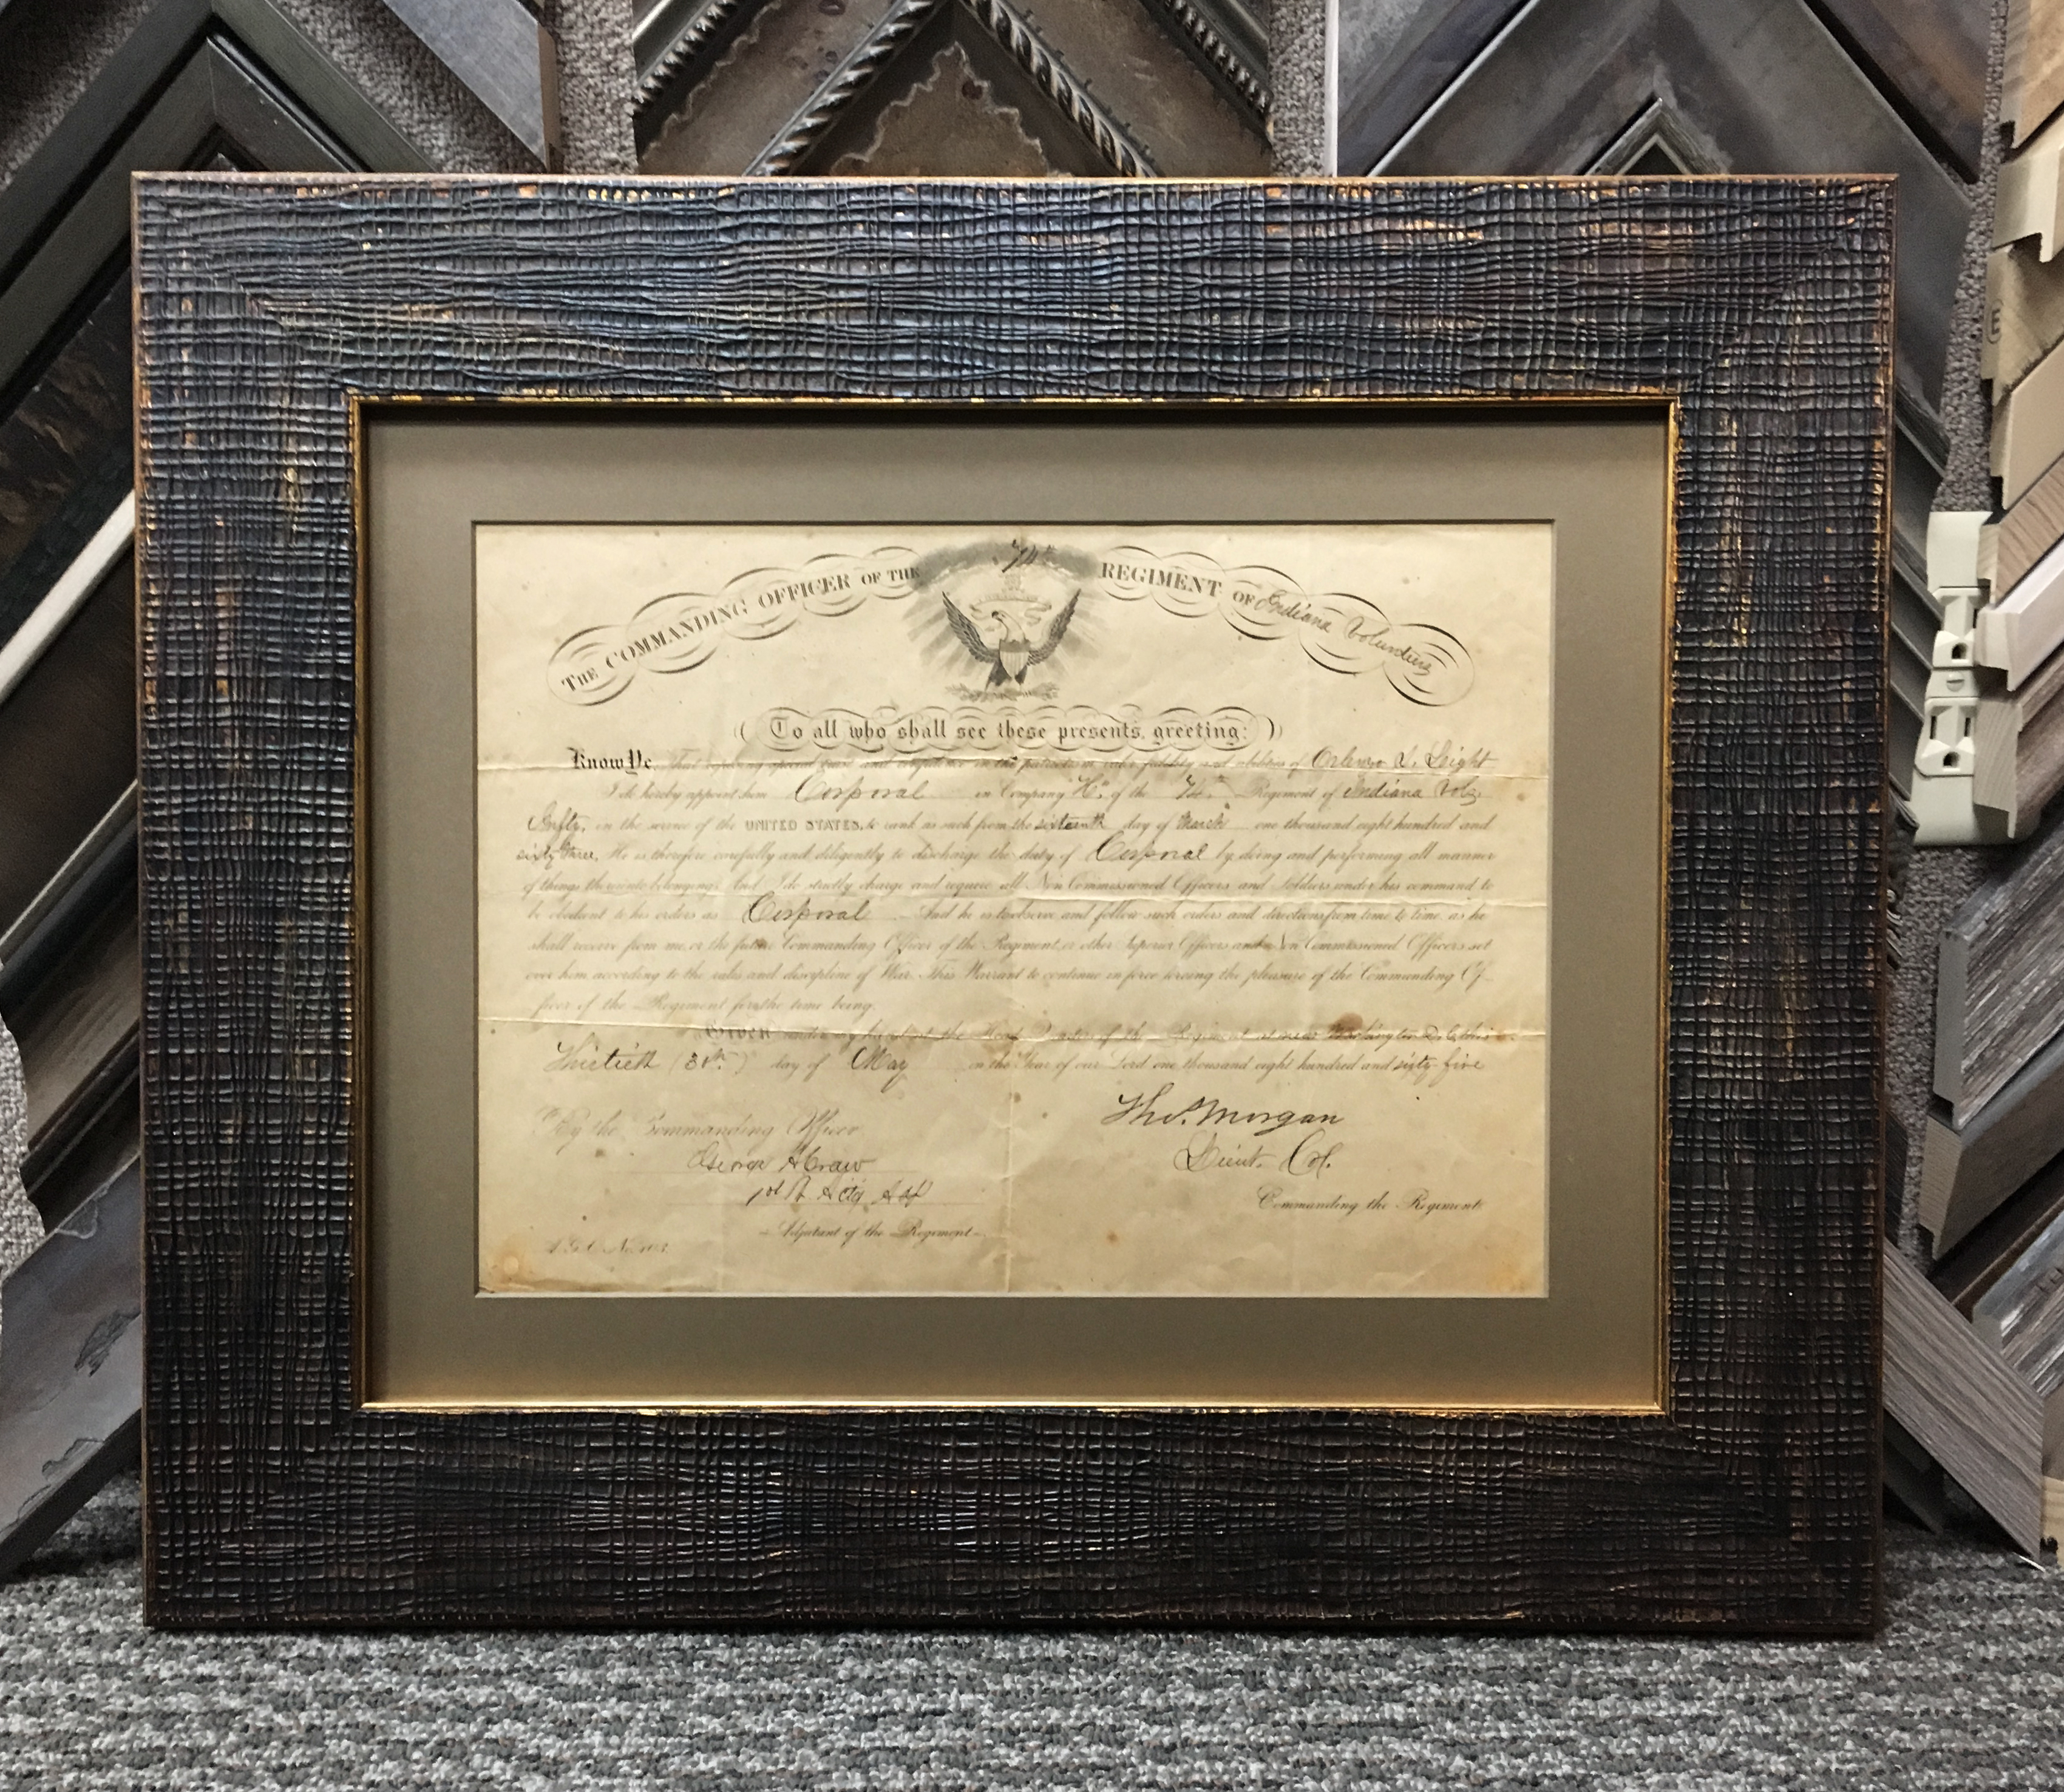 THE COMMANDING OFFICER OF THE 74th REGIMENT OF Indiana Volunteers
To all who shall see these presents, greeting:
Know Ye, That reposing special trust and confidence in the patriotism, valor, fidelity and abilities of S. Leight
I do hereby appoint him Corporal in Company "H" of the 74th Regiment of Indiana Vols
Infty, in the service of the UNITED STATES, to rank as such from the sixteenth day of March one thousand eight hundred and
sixty three. He is therefore carefully and diligently to discharge the duty of Corporal by doing and performing all manner
of things thereunto belonging. And I do strictly charge and require all Non Commissioned Officers and Soldiers under his command to
be obedient to his orders as Corporal And he is to observe and follow such orders and directions from time to time, as he
shall receive from me, or the future Commanding Officer of the Regiment, or other Superior Officers and Non Commissioned Officers set
over him according to the rules and discipline of War. This Warrant to continue in force during the pleasure of the Commanding Of-
ficer of the Regiment for the time being.
Given under my hand at the Head Quarters of the Regiment at near Washington D.C. this
Thirtieth (30th) day of May in the Year of our Lord one thousand eight hundred and sixty five
By the Commanding Officer
Thos. Morgan
George H Craw
Lieut. Col.
1st Lt & Actg Adj
Commanding the Regiment
Adjutant of the Regiment